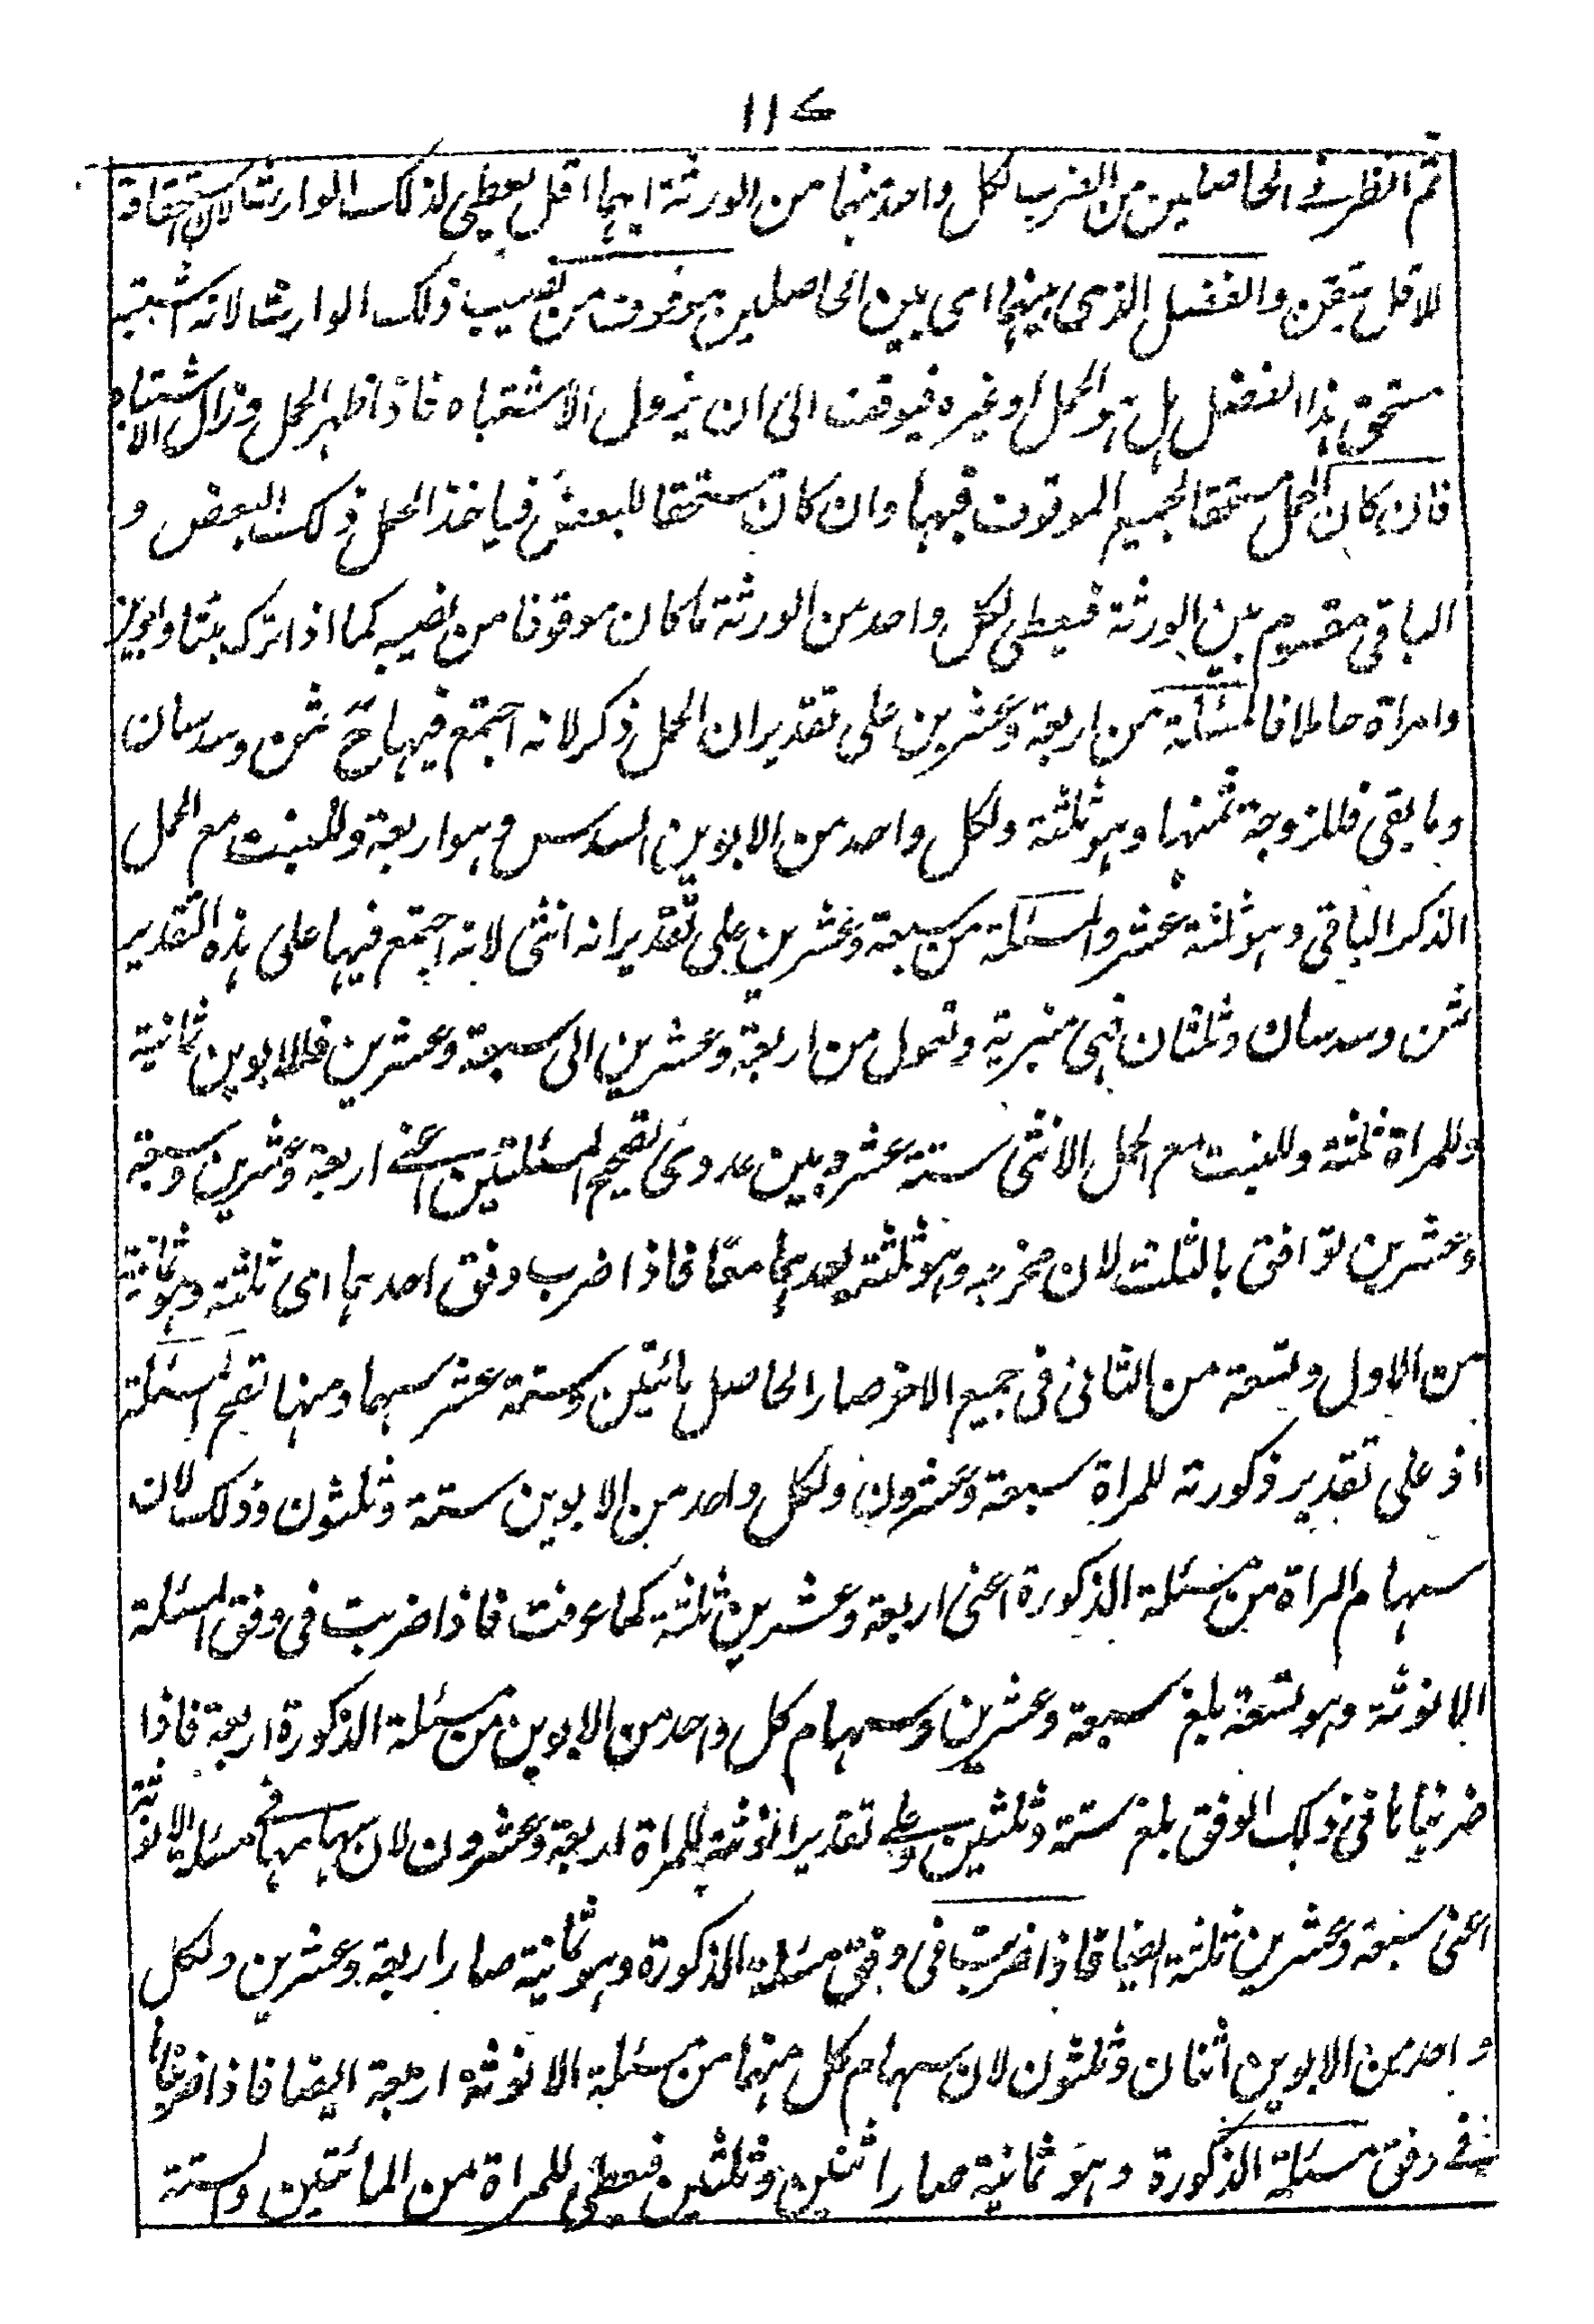 ١١٧
ثم انظر فی الحاصلین من الضرب لکل واحد منهما من الورثة ایهما اقل یعطی لذلک الوارث لان استحقاقه
لاقل متیقن والفضل الذی بینهما ای بین الحاصلین موقوف من نصیب ذلک الوارث لانه اشتبه
مستحق هذا الفضل هل هو الحمل او غیره فیوقف الی ان یزول الاشتباه فاذا ظهر الحمل وزال الاشتباه
فان کان الحمل مستحقا لجمیع الموقوف فبها وان کان مستحقا للبعض فیاخذ الحمل ذلک البعض و
الباقی مقسوم بین الورثة فیعطی لکل واحد من الورثة ما کان موقوفا من نصیبه کما اذا ترک بنتا وابوین
وامراة حاملا فالمسئلة من اربعة وعشرین علی تقدیر ان الحمل ذکر لانه اجتمع فیها ح ثمن وسدسان
وما بقی فللزوجة ثمنها وهو ثلثة ولکل واحد من الابوین السدس وهو اربعة وللبنت مع الحمل
الذکر الباقی وهو ثلثة عشر والمسئلة من سبعة وعشرین علی تقدیر انه انثی لانه اجتمع فیها علی هذه التقدیر
ثمن وسدسان وثلثان فهی منبریة وتعول من اربعة وعشرین الی سبعة وعشرین فللابوین ثمانیة
وللمراة ثلثة وللبنت مع الحمل الانثی ستة عشر وبین عددی تصحیح المسئلتین اعنی اربعة وعشرین وسبعة
وعشرین توافق بالثلث لان مخرجه وهو ثلثة یعدهما معا فاذا ضرب وفق احدهما ای ثلثة وهو ثمانیة
من الاول وتسعة من الثانی فی جمیع الاخر صار الحاصل مائتین وستة عشر سهما ومنها تصح المسئلة
اذ علی تقدیر ذکورته للمراة سبعة وعشرون ولکل واحد من الابوین ستة وثلثون وذلک لان
سهام المراة من مسئلة الذکورة اعنی اربعة وعشرین ثلثة کما عرفت فاذا ضربت فی وفق المسئلة
الانوثة وهو تسعة بلغ سبعة وعشرین وسهام کل واحد من الابوین من مسئلة الذکورة اربعة فاذا
ضربناها فی ذلک الوفق بلغ ستة وثلثین وعلی تقدیر انوثته للمراة اربعة وعشرون لان سهامها فی مسئلة الانوثة
اعنی سبعة وعشرین ثلثة ایضا فاذا ضربت فی وفق مسئلة الذکورة وهو ثمانیة صار اربعة وعشرین ولکل
واحد من الابوین اثنان وثلثون لان سهام کل منهما من مسئلة الانوثة اربعة ایضا فاذا ضربناها
فی وفق مسئلة الذکورة وهو ثمانیة صار اثنین وثلثین فیعطی للمراة من المائتین وستة